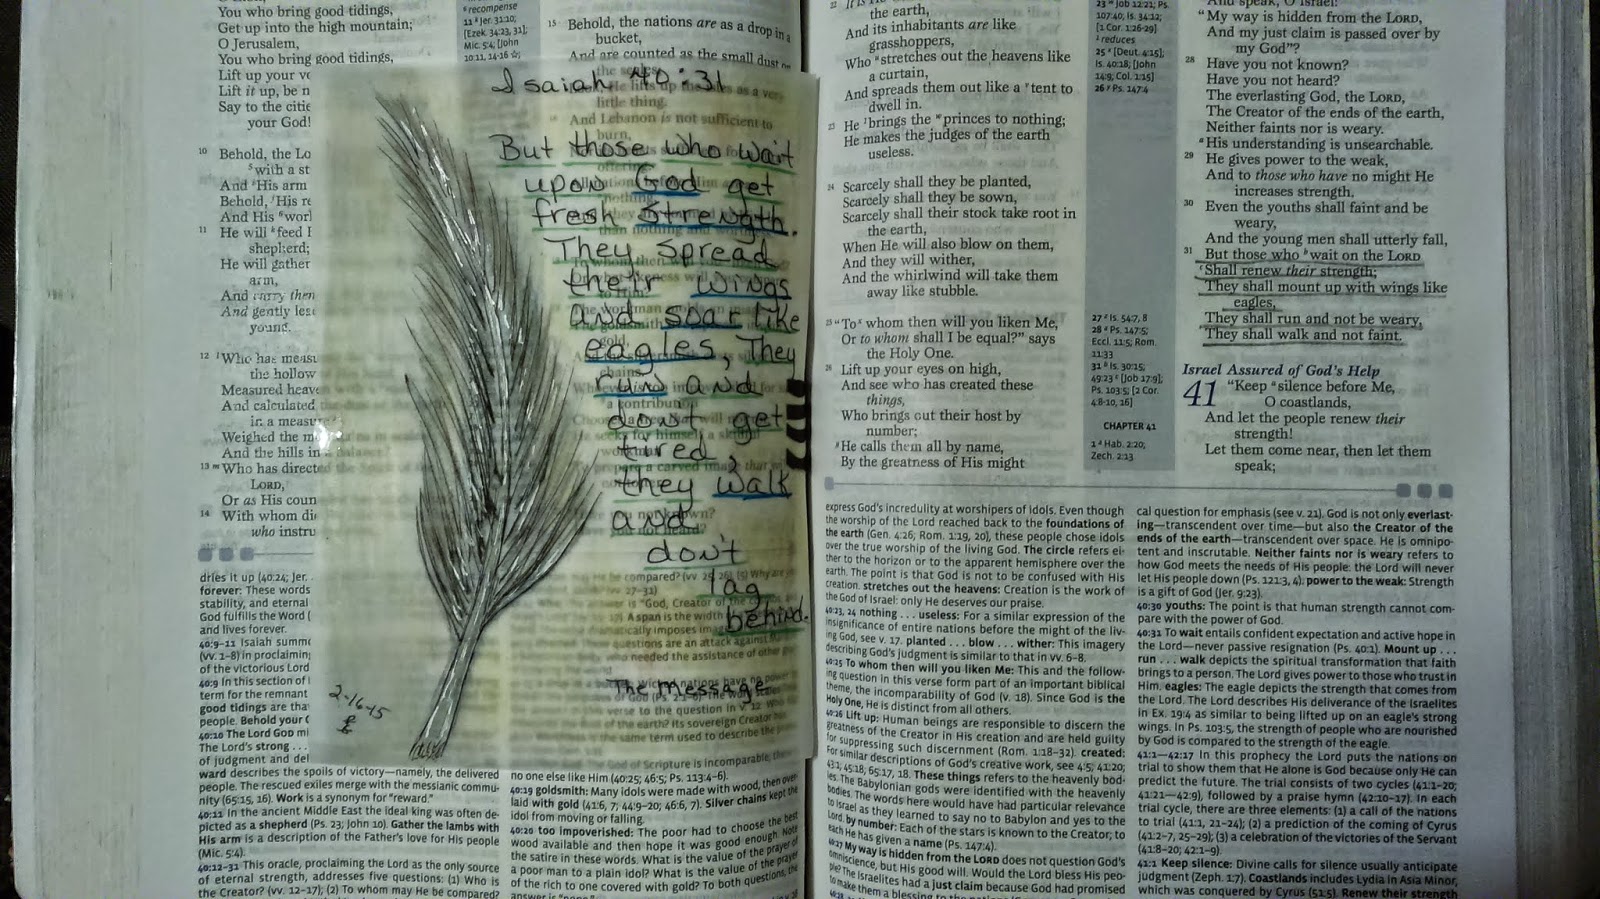 You who bring good tidings,
Get up into the high mountain;
O Jerusalem,
You who bring good tidings,
Lift up your
Lift it up, be n
Say to the citie
your God!
10 Behold, the Lo
with a st
And His arm
Behold, His re
And His work
11 He will feed
shepherd;
He will gather
arm,
And carry then
And gently lea
young.
12 Who has meas
the hollow
Measured heave
And calculated
in a measure
Weighed the m
And the hills in
13 Who has directed
LORD,
Or as His coun
14 With whom di
who instru
dries it up (40:24; Jer.
forever: These words
stability, and eternal
God fulfills the Word
and lives forever.
40:9–11 Isaiah summ
(vv. 1–8) in proclaimin
of the victorious Lord
40:9 In this section of
term for the remnant
good tidings are tha
people. Behold your
40:10 The Lord GOD mi
The Lord's strong . . .
of judgment and del
ward describes the spoils of victory—namely, the delivered
people. The rescued exiles merge with the messianic commu-
nity (65:15, 16). Work is a synonym for "reward."
40:11 In the ancient Middle East the ideal king was often de-
picted as a shepherd (Ps. 23; John 10). Gather the lambs with
His arm is a description of the Father's love for His people
(Mic. 5:4).
40:12–31 This oracle, proclaiming the Lord as the only source
of eternal strength, addresses five questions: (1) Who is
the Creator? (vv. 12–17); (2) To whom may He be compared?
recompense
11 Jer. 31:10;
[Ezek. 34:23, 31];
Mic. 5:4; [John
10:11, 14-16
15 Behold, the nations are as a drop in a
bucket,
And are counted as the small dust on
Isaiah 40:31
But those who wait
upon God get
fresh strength.
They spread
their wings
and soar like
eagles, They
run and
don't get
tired,
they walk
and
don't
lag
behind.
The Message
2-16-15
no one else like Him (40:25; 46:5; Ps. 113:4–6).
40:19 goldsmith: Many idols were made with wood, then over-
laid with gold (41:6, 7; 44:9–20; 46:6, 7). Silver chains kept the
idol from moving or falling.
40:20 too impoverished: The poor had to choose the best
wood available and then hope it was good enough. Note
the satire in these words. What is the value of the prayer of
a poor man to a plain idol? What is the value of the prayer
of the rich to one covered with gold? To both questions, the
answer is "none."
22 It is He
the earth,
And its inhabitants are like
grasshoppers,
Who stretches out the heavens like
a curtain,
And spreads them out like a tent to
dwell in.
23 He brings the princes to nothing;
He makes the judges of the earth
useless.
24 Scarcely shall they be planted,
Scarcely shall they be sown,
Scarcely shall their stock take root in
the earth,
When He will also blow on them,
And they will wither,
And the whirlwind will take them
away like stubble.
25 "To whom then will you liken Me,
Or to whom shall I be equal?" says
the Holy One.
26 Lift up your eyes on high,
And see who has created these
things,
Who brings out their host by
number;
He calls them all by name,
By the greatness of His might
23 Job 12:21; Ps.
107:40; Is. 34:12;
[1 Cor. 1:26-29]
reduces
25 [Deut. 4:15];
Is. 40:18; [John
14:9; Col. 1:15]
26 Ps. 147:4
27 Is. 54:7, 8
28 Ps. 147:5;
Eccl. 11:5; Rom.
11:33
31 Is. 30:15;
49:23 [Job 17:9];
Ps. 103:5; [2 Cor.
4:8-10, 16]
CHAPTER 41
1 Hab. 2:20;
Zech. 2:13
And speak, O Israel:
"My way is hidden from the LORD,
And my just claim is passed over by
my God"?
28 Have you not known?
Have you not heard?
The everlasting God, the LORD,
The Creator of the ends of the earth,
Neither faints nor is weary.
His understanding is unsearchable.
29 He gives power to the weak,
And to those who have no might He
increases strength.
30 Even the youths shall faint and be
weary,
And the young men shall utterly fall,
31 But those who wait on the LORD
Shall renew their strength;
They shall mount up with wings like
eagles,
They shall run and not be weary,
They shall walk and not faint.
Israel Assured of God's Help
41 "Keep silence before Me,
O coastlands,
And let the people renew their
strength!
Let them come near, then let them
speak;
express God's incredulity at worshipers of idols. Even though
the worship of the Lord reached back to the foundations of
the earth (Gen. 4:26; Rom. 1:19, 20), these people chose idols
over the true worship of the living God. The circle refers ei-
ther to the horizon or to the apparent hemisphere over the
earth. The point is that God is not to be confused with His
creation. stretches out the heavens: Creation is the work of
the God of Israel: only He deserves our praise.
40:23, 24 nothing . . . useless: For a similar expression of the
insignificance of entire nations before the might of the liv-
ing God, see v. 17. planted . . . blow . . . wither: This imagery
describing God's judgment is similar to that in vv. 6–8.
40:25 To whom then will you liken Me: This and the follow-
ing question in this verse form part of an important biblical
theme, the incomparability of God (v. 18). Since God is the
Holy One, He is distinct from all others.
40:26 Lift up: Human beings are responsible to discern the
greatness of the Creator in His creation and are held guilty
for suppressing such discernment (Rom. 1:18–32). created:
For similar descriptions of God's creative work, see 4:5; 41:20;
43:1; 45:18; 65:17, 18. These things refers to the heavenly bod-
ies. The Babylonian gods were identified with the heavenly
bodies. The words here would have had particular relevance
to Israel as they learned to say no to Babylon and yes to the
Lord. by number: Each of the stars is known to the Creator; to
each He has given a name (Ps. 147:4).
40:27 My way is hidden from the LORD does not question God's
omniscience, but His good will. Would the Lord bless His peo-
ple? The Israelites had a just claim because God had promised
to make them a blessing to the
cal question for emphasis (see v. 21). God is not only everlast-
ing—transcendent over time—but also the Creator of the
ends of the earth—transcendent over space. He is omnipo-
tent and inscrutable. Neither faints nor is weary refers to
how God meets the needs of His people: the Lord will never
let His people down (Ps. 121:3, 4). power to the weak: Strength
is a gift of God (Jer. 9:23).
40:30 youths: The point is that human strength cannot com-
pare with the power of God.
40:31 To wait entails confident expectation and active hope in
the Lord—never passive resignation (Ps. 40:1). Mount up . . .
run . . . walk depicts the spiritual transformation that faith
brings to a person. The Lord gives power to those who trust in
Him. eagles: The eagle depicts the strength that comes from
the Lord. The Lord describes His deliverance of the Israelites
in Ex. 19:4 as similar to being lifted up on an eagle's strong
wings. In Ps. 103:5, the strength of people who are nourished
by God is compared to the strength of the eagle.
41:1—42:17 In this prophecy the Lord puts the nations on
trial to show them that He alone is God because only He can
predict the future. The trial consists of two cycles (41:1–20;
41:21—42:9), followed by a praise hymn (42:10–17). In each
trial cycle, there are three elements: (1) a call of the nations
to trial (41:1, 21–24); (2) a prediction of the coming of Cyrus
(41:2–7, 25–29); (3) a celebration of the victories of the Servant
(41:8–20; 42:1–9).
41:1 Keep silence: Divine calls for silence usually anticipate
judgment (Zeph. 1:7). Coastlands includes Lydia in Asia Minor,
which was conquered by Cyrus (51:5). Renew their strength